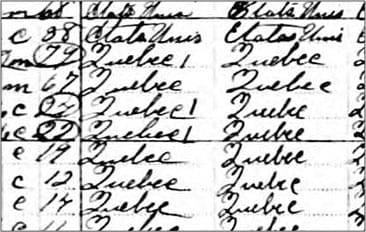 m 68 Etats Unis Etats Unis
c 38 Etats Unis Etats Unis
m 79 Quebec 1 Quebec
m 67 Quebec Quebec
c 22 Quebec 1 Quebec
c 22 Quebec 1 Quebec
c 19 Quebec Quebec
c 12 Quebec Quebec
c 14 Quebec Quebec